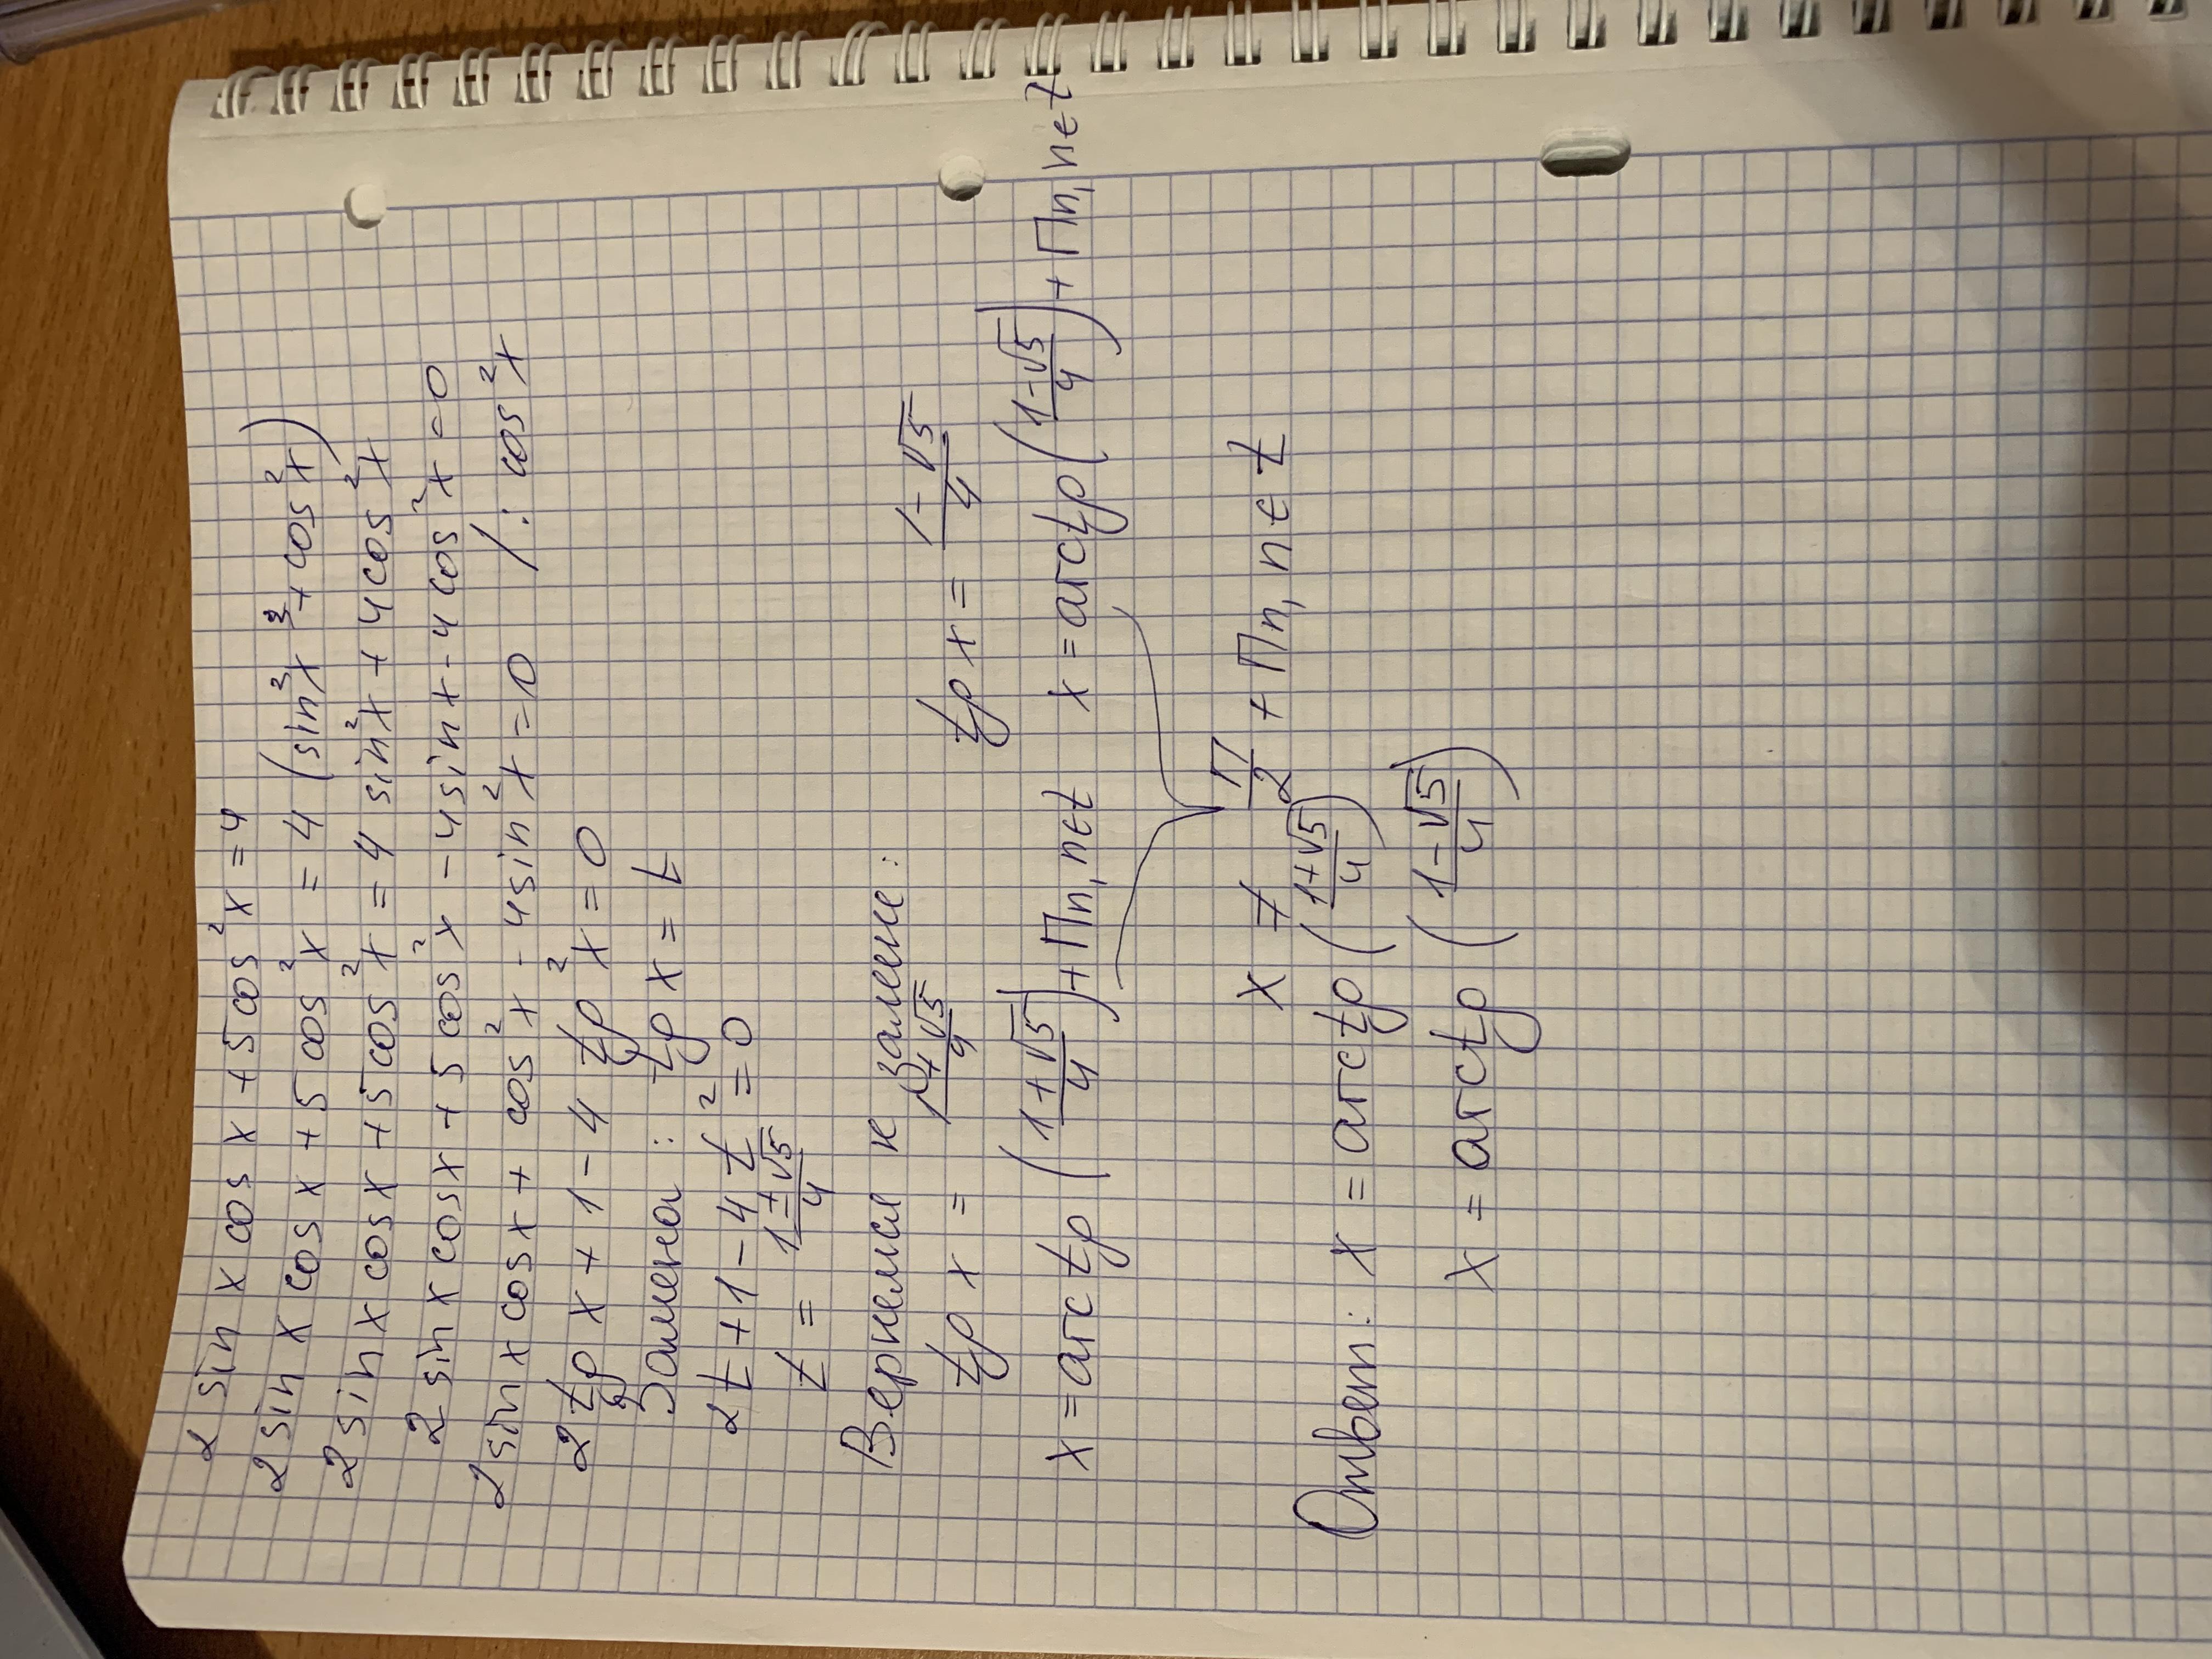 2 sin x cos x + 5 cos² x = 4
2 sin x cos x + 5 cos² x = 4 (sin² x + cos² x)
2 sin x cos x + 5 cos² x = 4 sin² x + 4 cos² x
2 sin x cos x + 5 cos² x - 4 sin x - 4 cos² x = 0
2 sin x cos x + cos² x - 4 sin² x = 0 /: cos² x
2 tg x + 1 - 4 tg² x = 0
Замена: tg x = t
2t + 1 - 4t² = 0
t = (1 ± √5)/4
Вернемся к замене:
tg x = (1 + √5)/4 tg x = (1 - √5)/4
x = arctg ((1 + √5)/4) + Πn, n ∈ Z x = arctg ((1 - √5)/4) + Πn, n ∈ Z
x ≠ Π/2 + Πn, n ∈ Z
Ответ: x = arctg ((1 + √5)/4)
x = arctg ((1 - √5)/4)